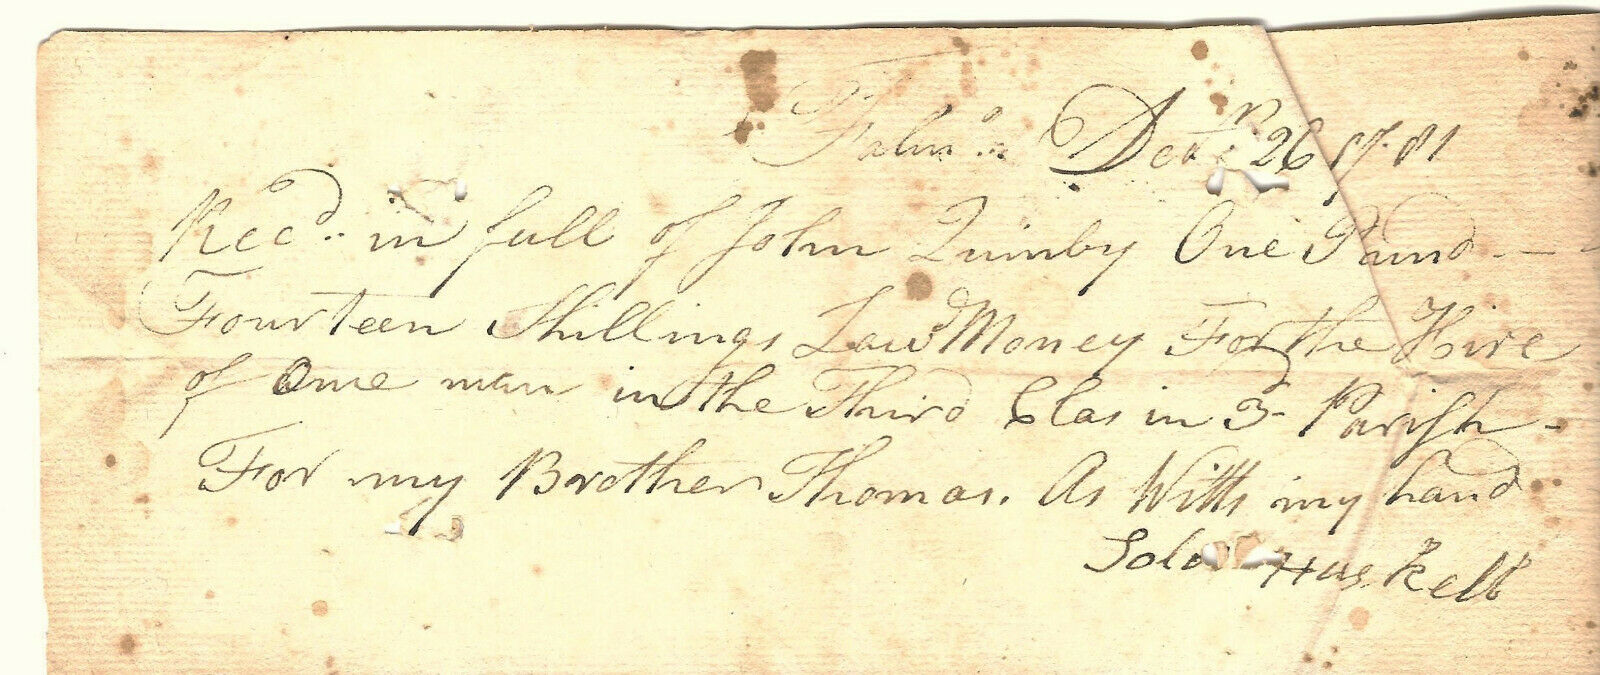 Falmo. Decr. 26 1781
Recd. in full of John Quinby One Pound --
Fourteen Shillings Lawd Money For the Hire
of One man in the Third Clas in 3d Parish -
For my Brother Thomas. As Witts my hand
Solo Haskell